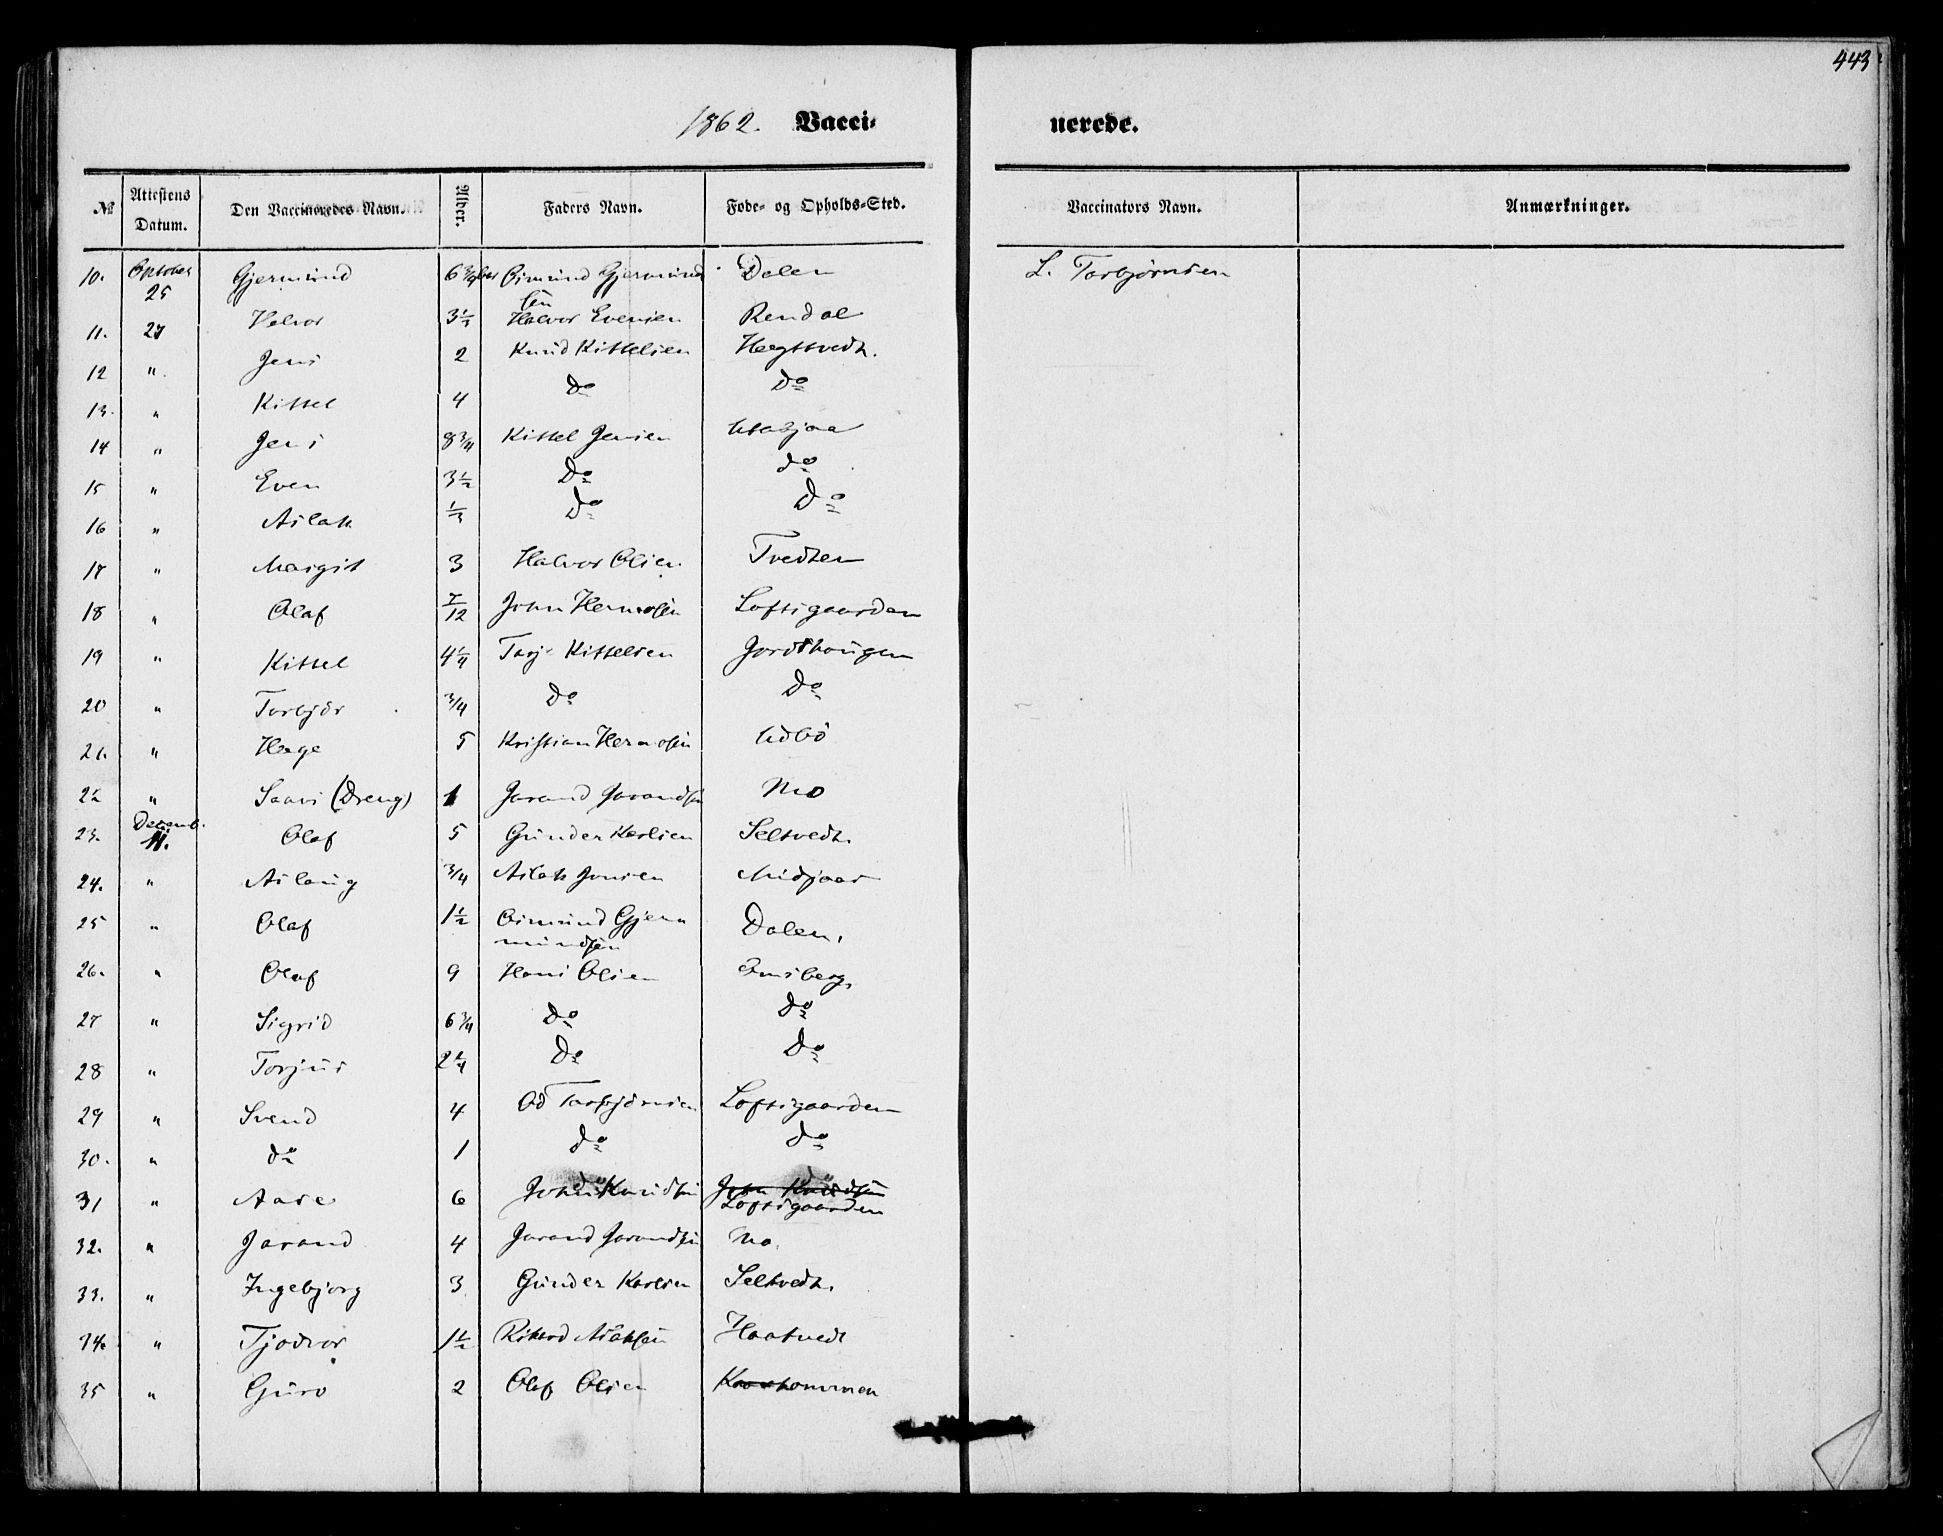 443
1862. Vacci-
nerede.
№ Attestens Datum. Den Vaccineredes Navn. Alder. Faders Navn. Føde- og Opholds-Sted. Vaccinators Navn. Anmærkninger.
10. October 25 Gjermund 6 3/4 Gjermund Dalen L. Torbjørnsen
sen
11. 27 Halvor 3 1/2 Halvor Evensen Rendal
12 " Jens 2 Knud Kittelsen Hegttvedt.
13. " Kittel 4 Do Do
14 " Jens 8 3/4 Kittel Jensen
15 " Even 3 1/2 Do do
16 " Aslak Do Do
17 " Margit 3 Halvor Olsen Tvedten
18 " Olaf 7/12 John Hermosen Loftsgaarden
19 " Kittel 4 1/4 Torj. Kittelsen Jordshaugen
20 " Torbjør 3/4 Do Do
21. " Hege 5 Kristian Hermosen Udbö
22 " Saavi (Dreng) 1 Jorand Jorandsen Mo
23. Decemb. 11. Olaf 5 Gunder Karlsen Seltvedt.
24. " Aslaug 3/4 Aslak Jonsen Midjaas
25 " Olaf 1 1/2 Gjer- Dalen,
mundsen
26. " Olaf 9 Hans Olsen
27 " Sigrid 6 3/4 Do Do
28 " Torjus 2 1/4 Do Do
29 " Svend 4 Od Torbjørnsen Loftsgaarden
30. " do 1 do do
31 " Aase 6 John Knudsen John Knudsen
Loftsgaarden
32. " Jorand 4 Jorand Jorandsen Mo.
33. " Ingebjorg 3 Gunder Karlsen Seltvedt.
34. " Tjodvor 1 1/2 Rikard Aslaksen Haatvedt
35 " Guro 2 Olaf Olsen